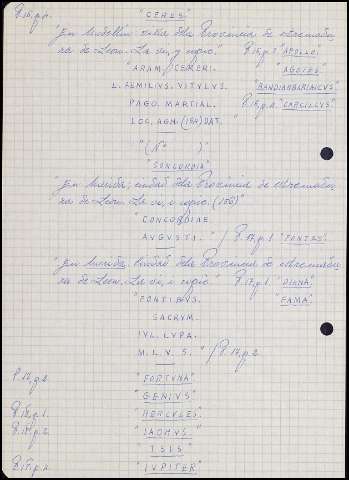 "CERES"
"En Medellin villa dela Provincia de estremadu,
ra de Leon. La vi, y copie." P.16,p.1 "APOLLO"
"ARAM. CERERI. "AGOTES"
L. AEMILIVS. VITVLVS. "BANDIARBARIAICVS"
PAGO. MARTIAL. "CARCILLVS"
LOC. AGM. (154) DAT. "
"(Nº )
"CONCORDIA"
"En Merida, ciudad dela Provincia de estremadu,
ra de Leon. La vi, i copie. (156)"
"CONCORDIAE
AVGVSTI." / P.17,p.1 "FONTES"
"En Merida. Ciudad dela Provincia de estremadu,
ra de Leon. La vi, i copie" P.17,p.1 "DIANA"
"FONTIBVS. "FAMA"
SACRVM.
IVL. LVPA.
M. L. V. S. " / P.17,p.2
P.17,p.2 "FORTVNA"
"GENIVS"
P.18,p.1. "HERCVLES"
P.18,p.2. "IANVS"
"ISIS"
"IVPITER"